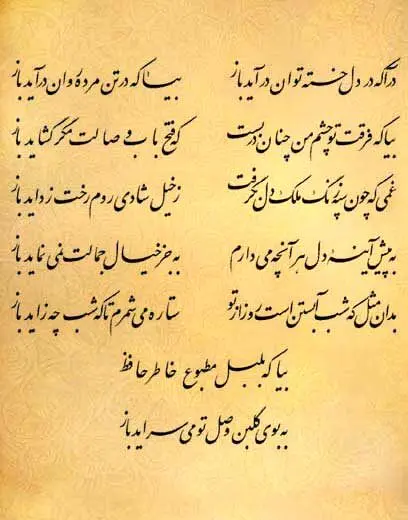 درآ که در دل خسته توان درآید باز بیا که در تن مرده روان درآید باز
بیا که فرقت تو چشم من چنان در بست که فتح باب وصالت مگر گشاید باز
غمی که چون سپه زنگ ملک دل بگرفت ز خیل شادی روم رخت زداید باز
به پیش آینه دل هر آنچه می دارم به جز خیال جمالت نمی نماید باز
بدان مثل که شب آبستن است روز از تو ستاره می شمرم تا که شب چه زاید باز
بیا که بلبل مطبوع خاطر حافظ
به بوی گلبن وصل تو می سراید باز